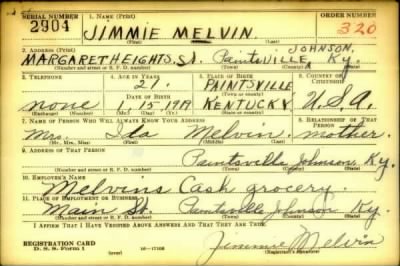 SERIAL NUMBER 1. NAME (Print) ORDER NUMBER
2904 JIMMIE MELVIN. 320
(First) (Middle) (Last)
2. ADDRESS (Print) JOHNSON,
MARGARETHEIGHTS, St. PaintsVille, Ky.
(Number and street or R. F. D. number) (Town) (County) (State)
3. TELEPHONE 4. AGE IN YEARS 5. PLACE OF BIRTH 6. COUNTRY OF CITIZENSHIP
21. PAINTSVILLE
(Town or county)
DATE OF BIRTH
none 1 15 1919 KENTUCKY. U.S.A.
(Exchange) (Number) (Mo.) (Day) (Yr.) (State or country)
7. NAME OF PERSON WHO WILL ALWAYS KNOW YOUR ADDRESS 8. RELATIONSHIP OF THAT PERSON
Mrs. Ida Melvin. mother.
(Mr., Mrs., Miss) (First) (Middle) (Last)
9. ADDRESS OF THAT PERSON
Paintsville Johnson, Ky.
(Number and street or R. F. D. number) (Town) (County) (State)
10. EMPLOYER'S NAME
Melvins Cash grocery.
11. PLACE OF EMPLOYMENT OR BUSINESS
Main St. Paintsville Johnson Ky.
(Number and street or R. F. D. number) (Town) (County) (State)
I AFFIRM THAT I HAVE VERIFIED ABOVE ANSWERS AND THAT THEY ARE TRUE.
REGISTRATION CARD
D. S. S. Form 1 (over) 16—17105 Jimmie Melvin
(Registrant's signature)